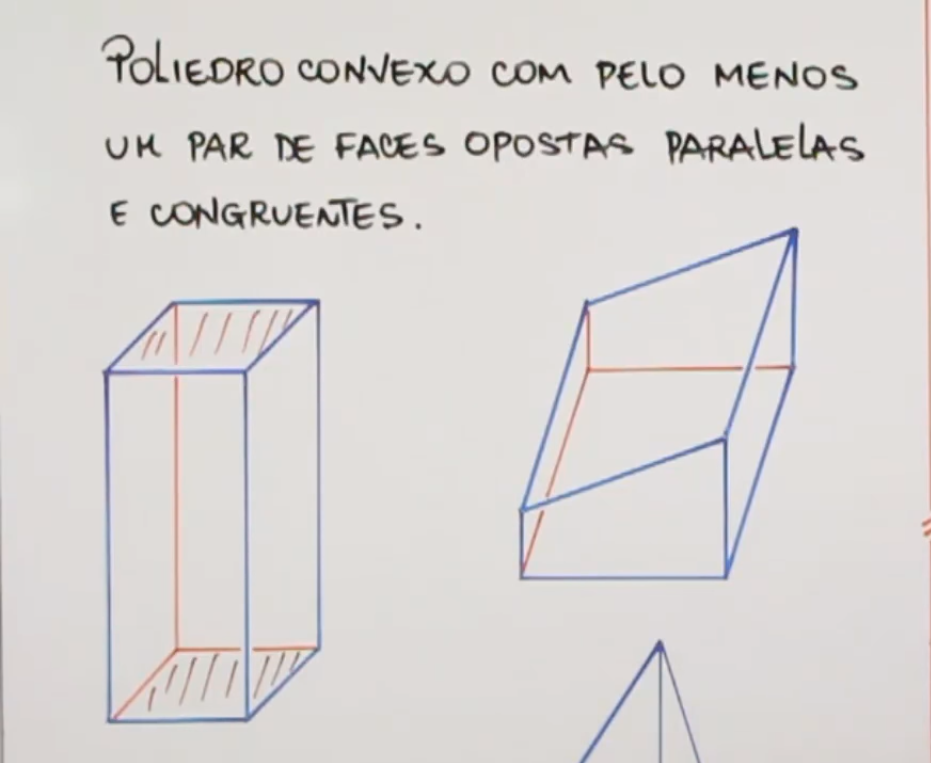 POLIEDRO CONVEXO COM PELO MENOS
UM PAR DE FACES OPOSTAS PARALELAS
E CONGRUENTES.